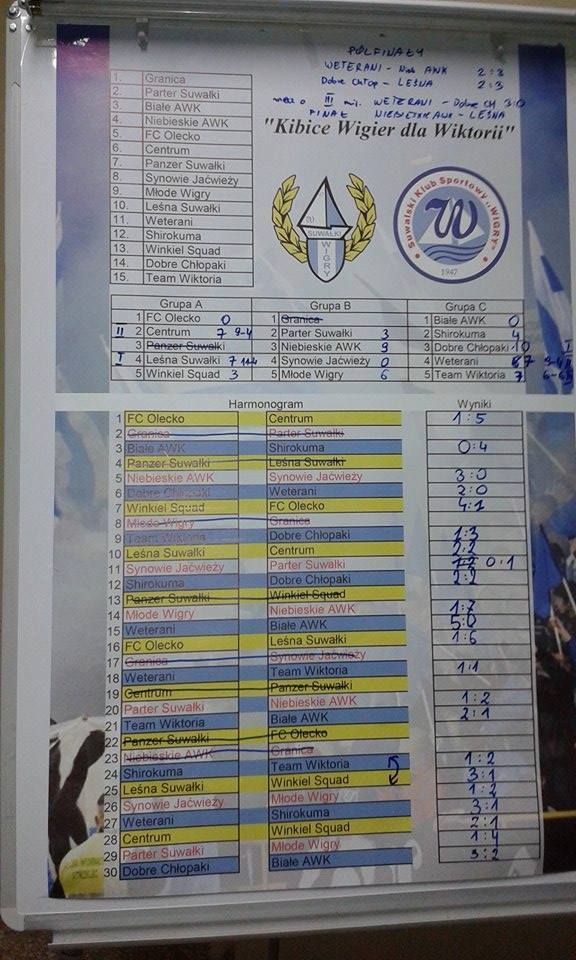 PÓŁFINAŁY
WETERANI - Nieb AWK 2:3
Dobre Chłop - LEŚNA 2:3
mecz o III m. WETERANI - Dobre CH 3:0
FINAŁ NIEBIESKIE AWK - LEŚNA
"Kibice Wigier dla Wiktorii"
1. Granica
2. Parter Suwałki
3. Białe AWK
4. Niebieskie AWK
5. FC Olecko
6. Centrum
7. Panzer Suwałki
8. Synowie Jaćwieży
9. Młode Wigry
10. Leśna Suwałki
11. Weterani
12. Shirokuma
13. Winkiel Squad
14. Dobre Chłopaki
15. Team Wiktoria
SUWAŁKI
WIGRY
Suwalski Klub Sportowy „WIGRY"
W
1947
Grupa A Grupa B Grupa C
1 FC Olecko 0 1 Granica 1 Białe AWK 0
II 2 Centrum 7 9-4 2 Parter Suwałki 3 2 Shirokuma 4
3 Panzer Suwałki 3 Niebieskie AWK 9 3 Dobre Chłopaki 10 I
I 4 Leśna Suwałki 7 4 Synowie Jaćwieży 0 4 Weterani 7
5 Winkiel Squad 3 5 Młode Wigry 6 5 Team Wiktoria 7 6-6
Harmonogram Wyniki
1 FC Olecko Centrum 1:5
2 Granica Parter Suwałki
3 Białe AWK Shirokuma 0:4
4 Panzer Suwałki Leśna Suwałki
5 Niebieskie AWK Synowie Jaćwieży 3:0
6 Dobre Chłopaki Weterani 2:0
7 Winkiel Squad FC Olecko 4:1
8 Młode Wigry Granica
9 Team Wiktoria Dobre Chłopaki 1:3
10 Leśna Suwałki Centrum 2:2
11 Synowie Jaćwieży Parter Suwałki 0:1
12 Shirokuma Dobre Chłopaki 2:2
13 Panzer Suwałki Winkiel Squad
14 Młode Wigry Niebieskie AWK 1:7
15 Weterani Białe AWK 5:0
16 FC Olecko Leśna Suwałki 1:6
17 Granica Synowie Jaćwieży
18 Weterani Team Wiktoria 1:1
19 Centrum Panzer Suwałki
20 Parter Suwałki Niebieskie AWK 1:2
21 Team Wiktoria Białe AWK 2:1
22 Panzer Suwałki FC Olecko
23 Niebieskie AWK Granica
24 Shirokuma Team Wiktoria 1:2
25 Leśna Suwałki Winkiel Squad 3:1
26 Synowie Jaćwieży Młode Wigry 1:2
27 Weterani Shirokuma 3:1
28 Centrum Winkiel Squad 2:1
29 Parter Suwałki Młode Wigry 1:4
30 Dobre Chłopaki Białe AWK 3:2